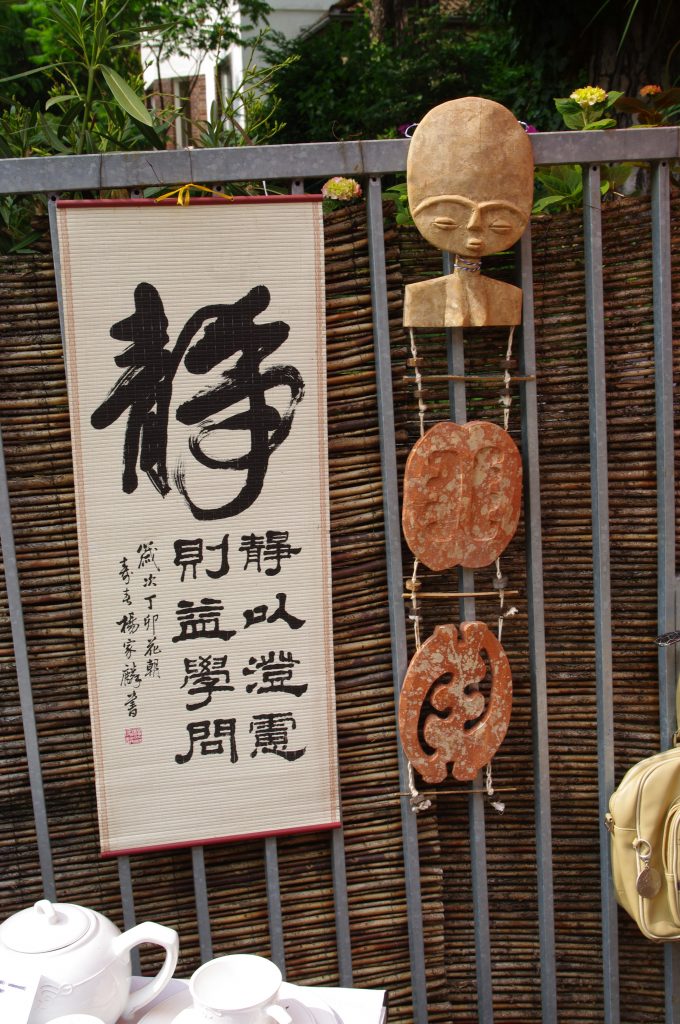 靜
靜以澄慮
則益學問
歲次丁卯花朝
壽春楊家麟書